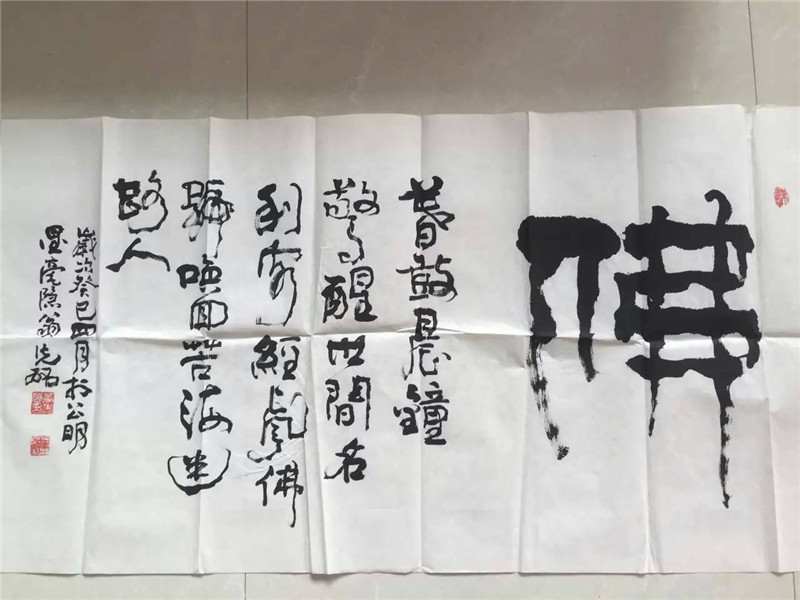 佛
暮鼓晨鐘
警醒世間名
利客經聲佛
號喚回苦海迷
路人
歲次癸巳四月於公明
墨亳隐翁